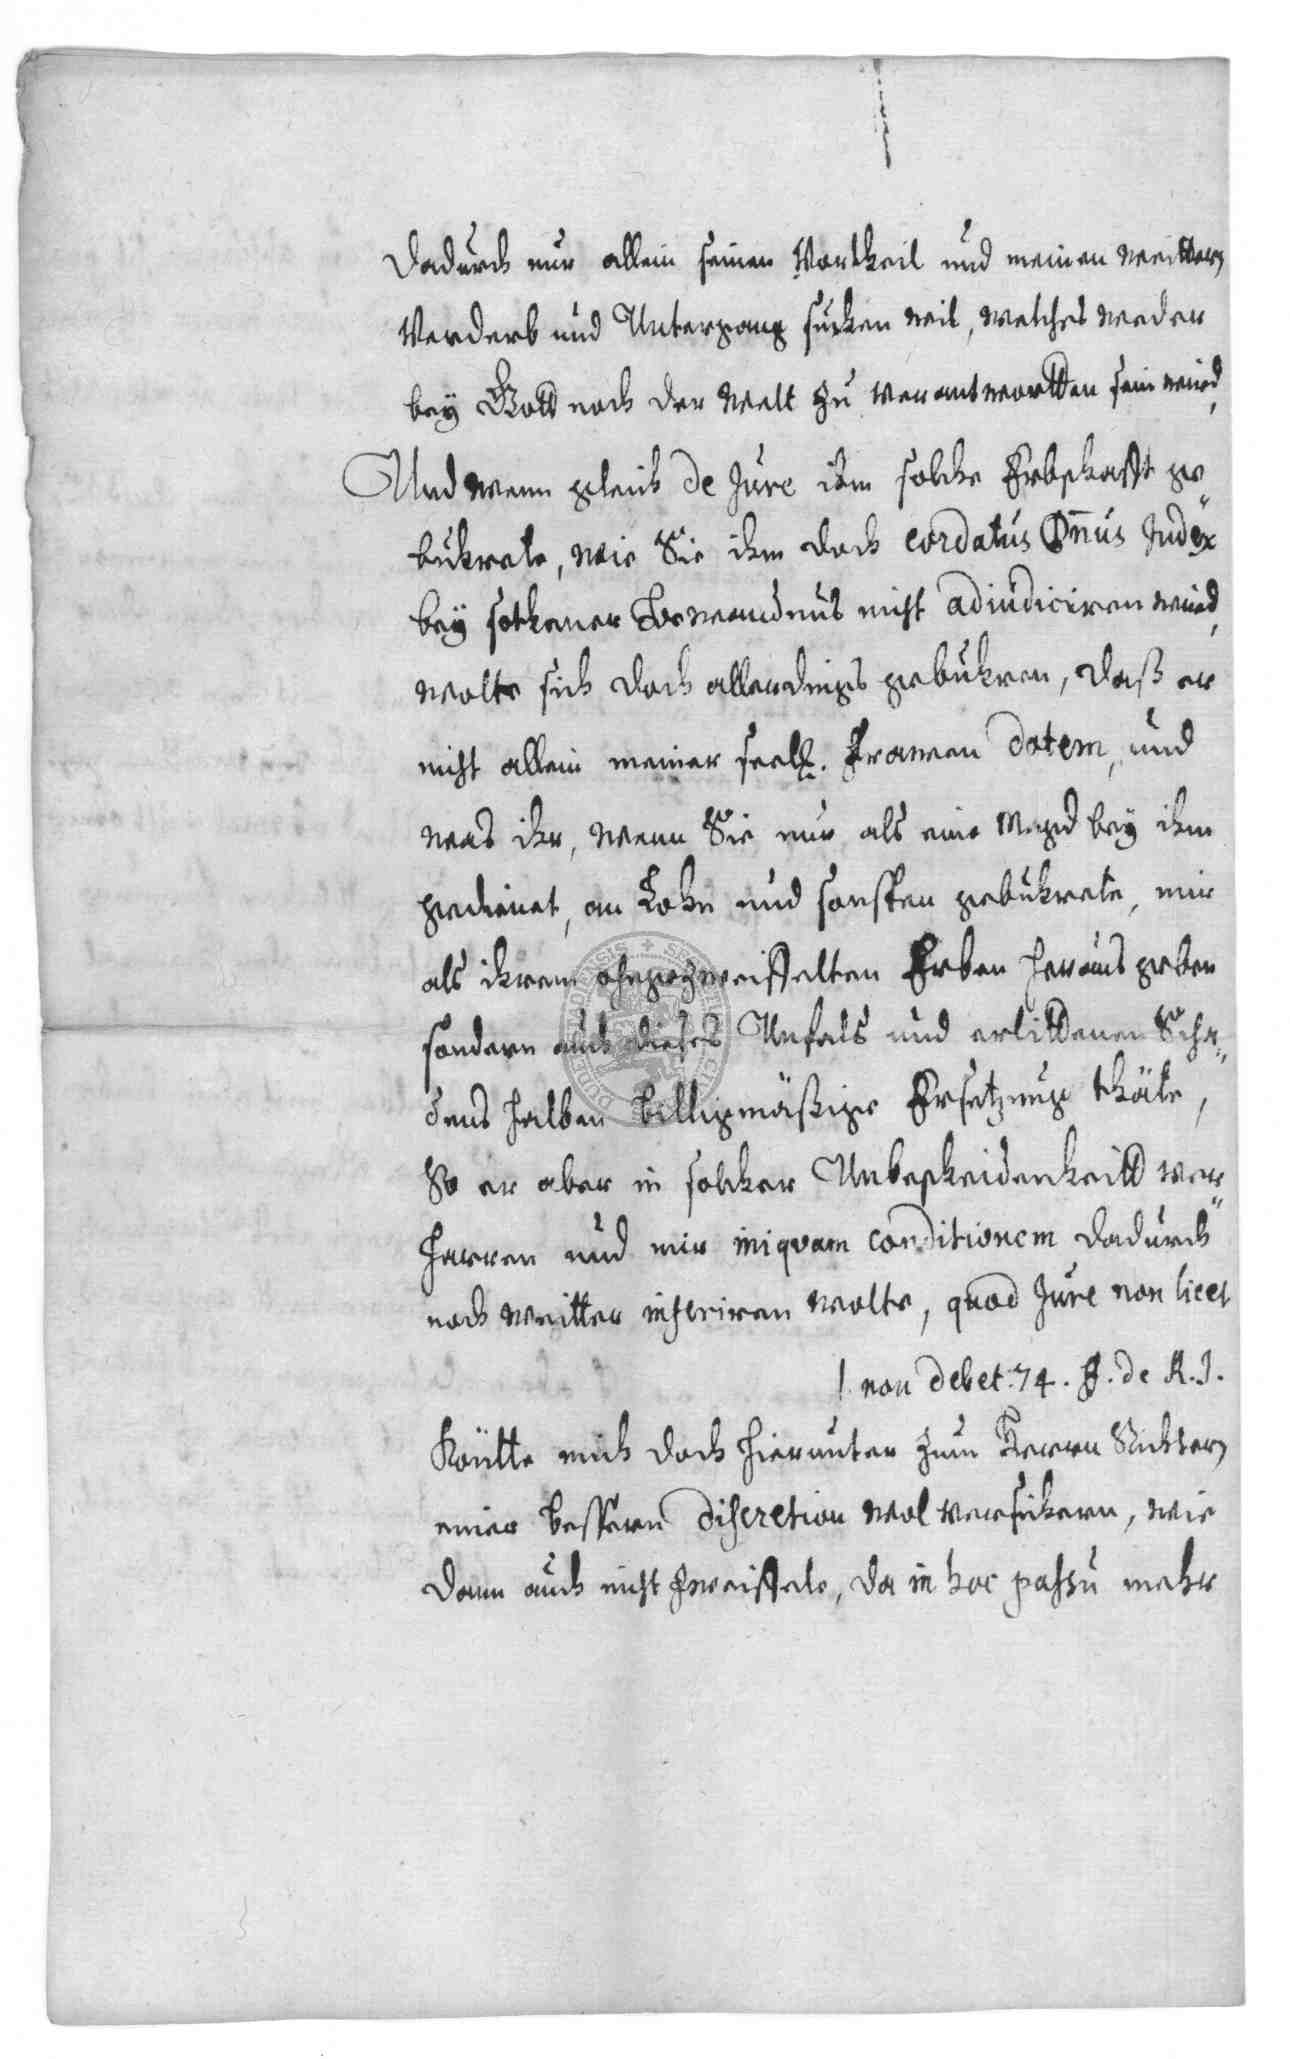 dadurch nur allein seinen Vortheil und meinen weittern
Verderb und Untergang suchen wil, welches weder
bey Gott noch der Welt zu verantwortten sein wird,
Und wenn gleich de Jure ihm solche Erbschafft ge
buhrete, wie Sie ihm doch cordatus Dnus Judex
bey sothener Bewandnus nicht adiudiciren wird,
wolte sich doch allerdings gebuhren, daß er
nicht allein meiner seel. Frawen dotem, und
was ihr, wenn Sie nur als eine Magd bey ihm
gedienet, an Lohn und sonsten gebuhrete, mir
als ihrem ohngezweiffelten Erben heraus geben
sondern auch dieses Unfals und erlittenen Scha=
dens halben billigmäßige Ersetzung thäte,
So er aber in solcher Unbescheidenheitt ver=
harren und mir iniqvam conditionem dadurch
noch weitter inferiren wolte, quod Jure non licet
l. non debet. 74. ff. de R. J.
Köntte mich doch hierunter zum Herrn Richtern
einer bessern discretion wol versichern, wie
dann auch nicht zweiffele, da in hoc passu mehr